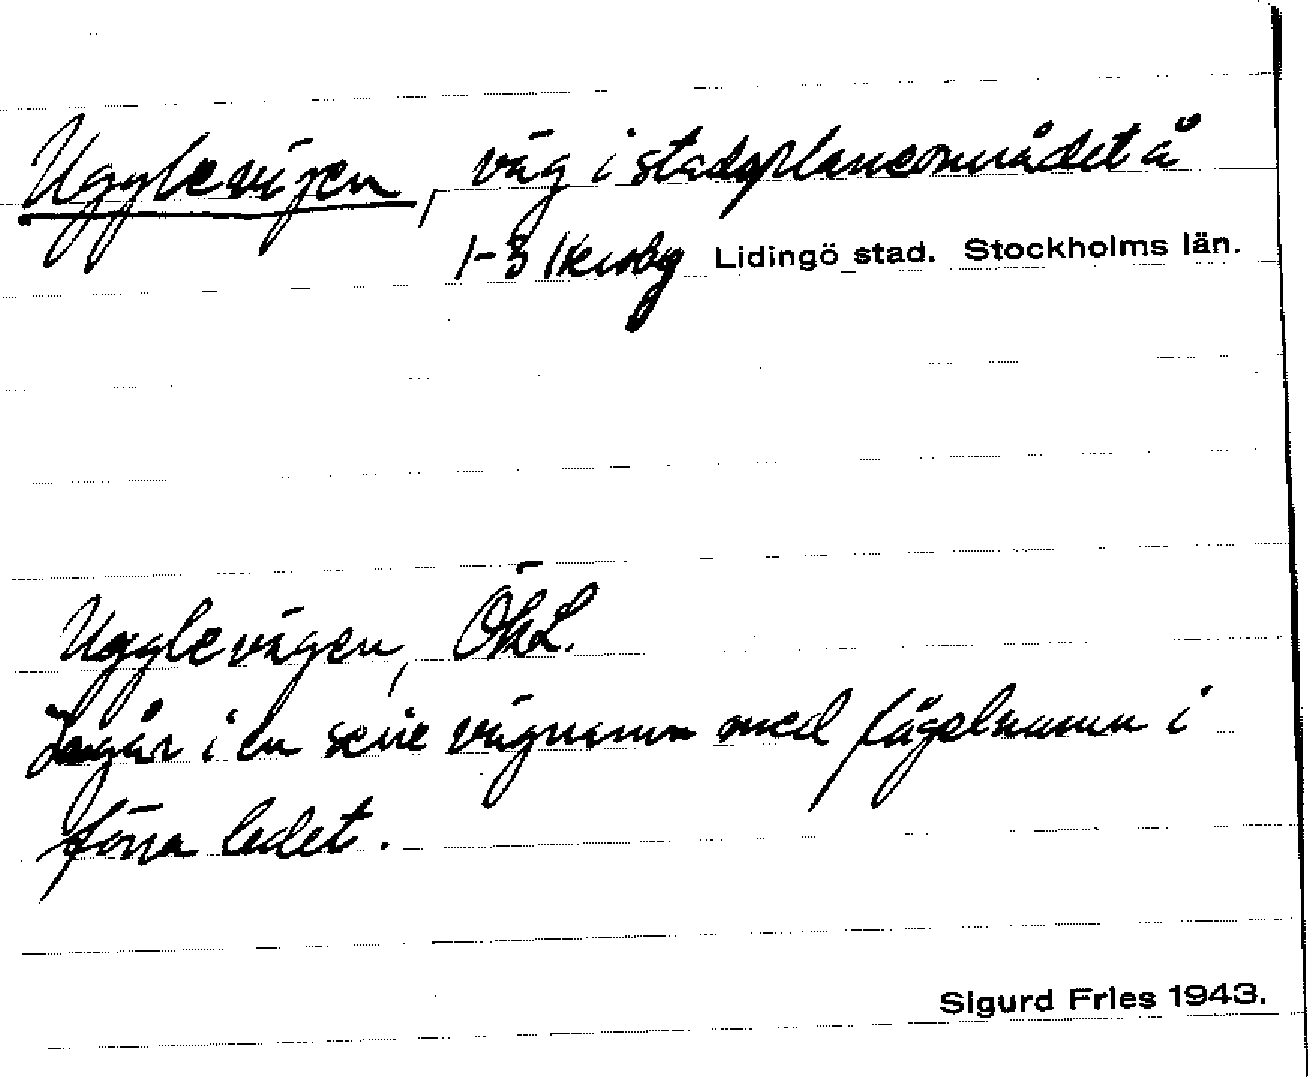 Ugglevägen, väg i stadsplaneområdet å
1-3 Kersby Lidingö stad. Stockholms län.
Ugglevägen, ÖhL.
Ingår i en serie vägnamn med fågelnamn i
förra ledet.
Sigurd Fries 1943.